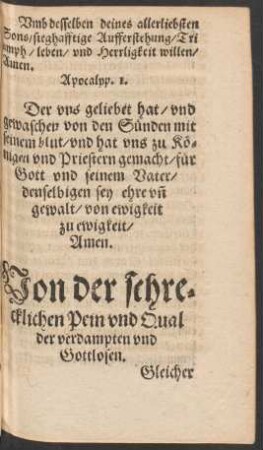 Vmb desselben deines allerliebsten
Sons/ sieghafftige Aufferstehung/ Tri
umph/ leben/ vnd Herrligkeit willen/
Amen.
Apocalyp. 1.
Der vns geliebet hat/ vnd
gewaschen von den Sünden mit
seinem blut/ vnd hat vns zu Kö-
nigen vnd Priestern gemacht/ für
Gott vnd seinem Vater/
denselbigen sey ehre vñ
gewalt/ von ewigkeit
zu ewigkeit/
Amen.
Von der schre-
cklichen Pein vnd Qual
der verdampten vnd
Gottlosen.
Gleicher